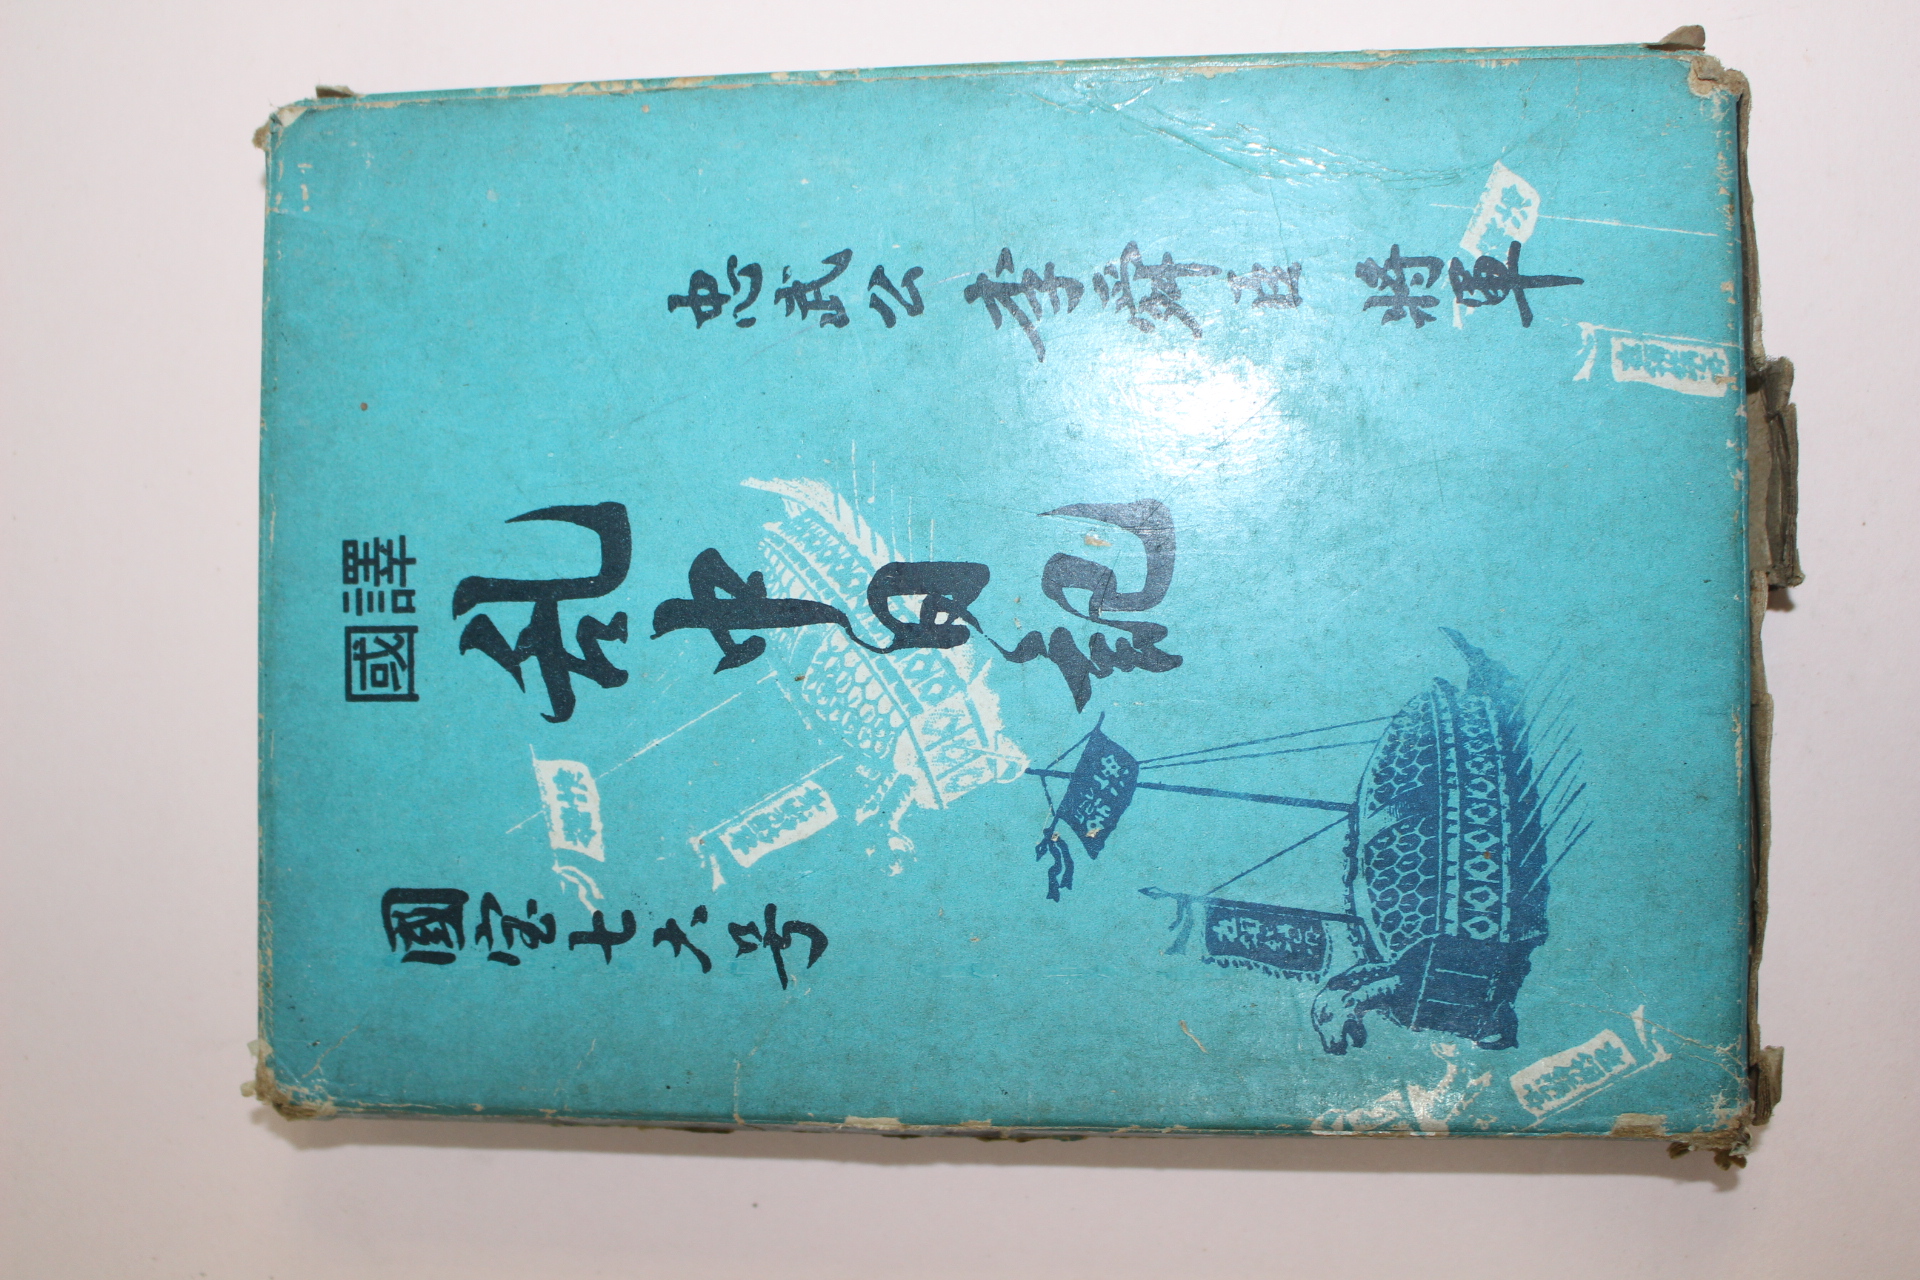 忠武公 李舜臣 將軍
國譯
乱中日記
國宝七六号